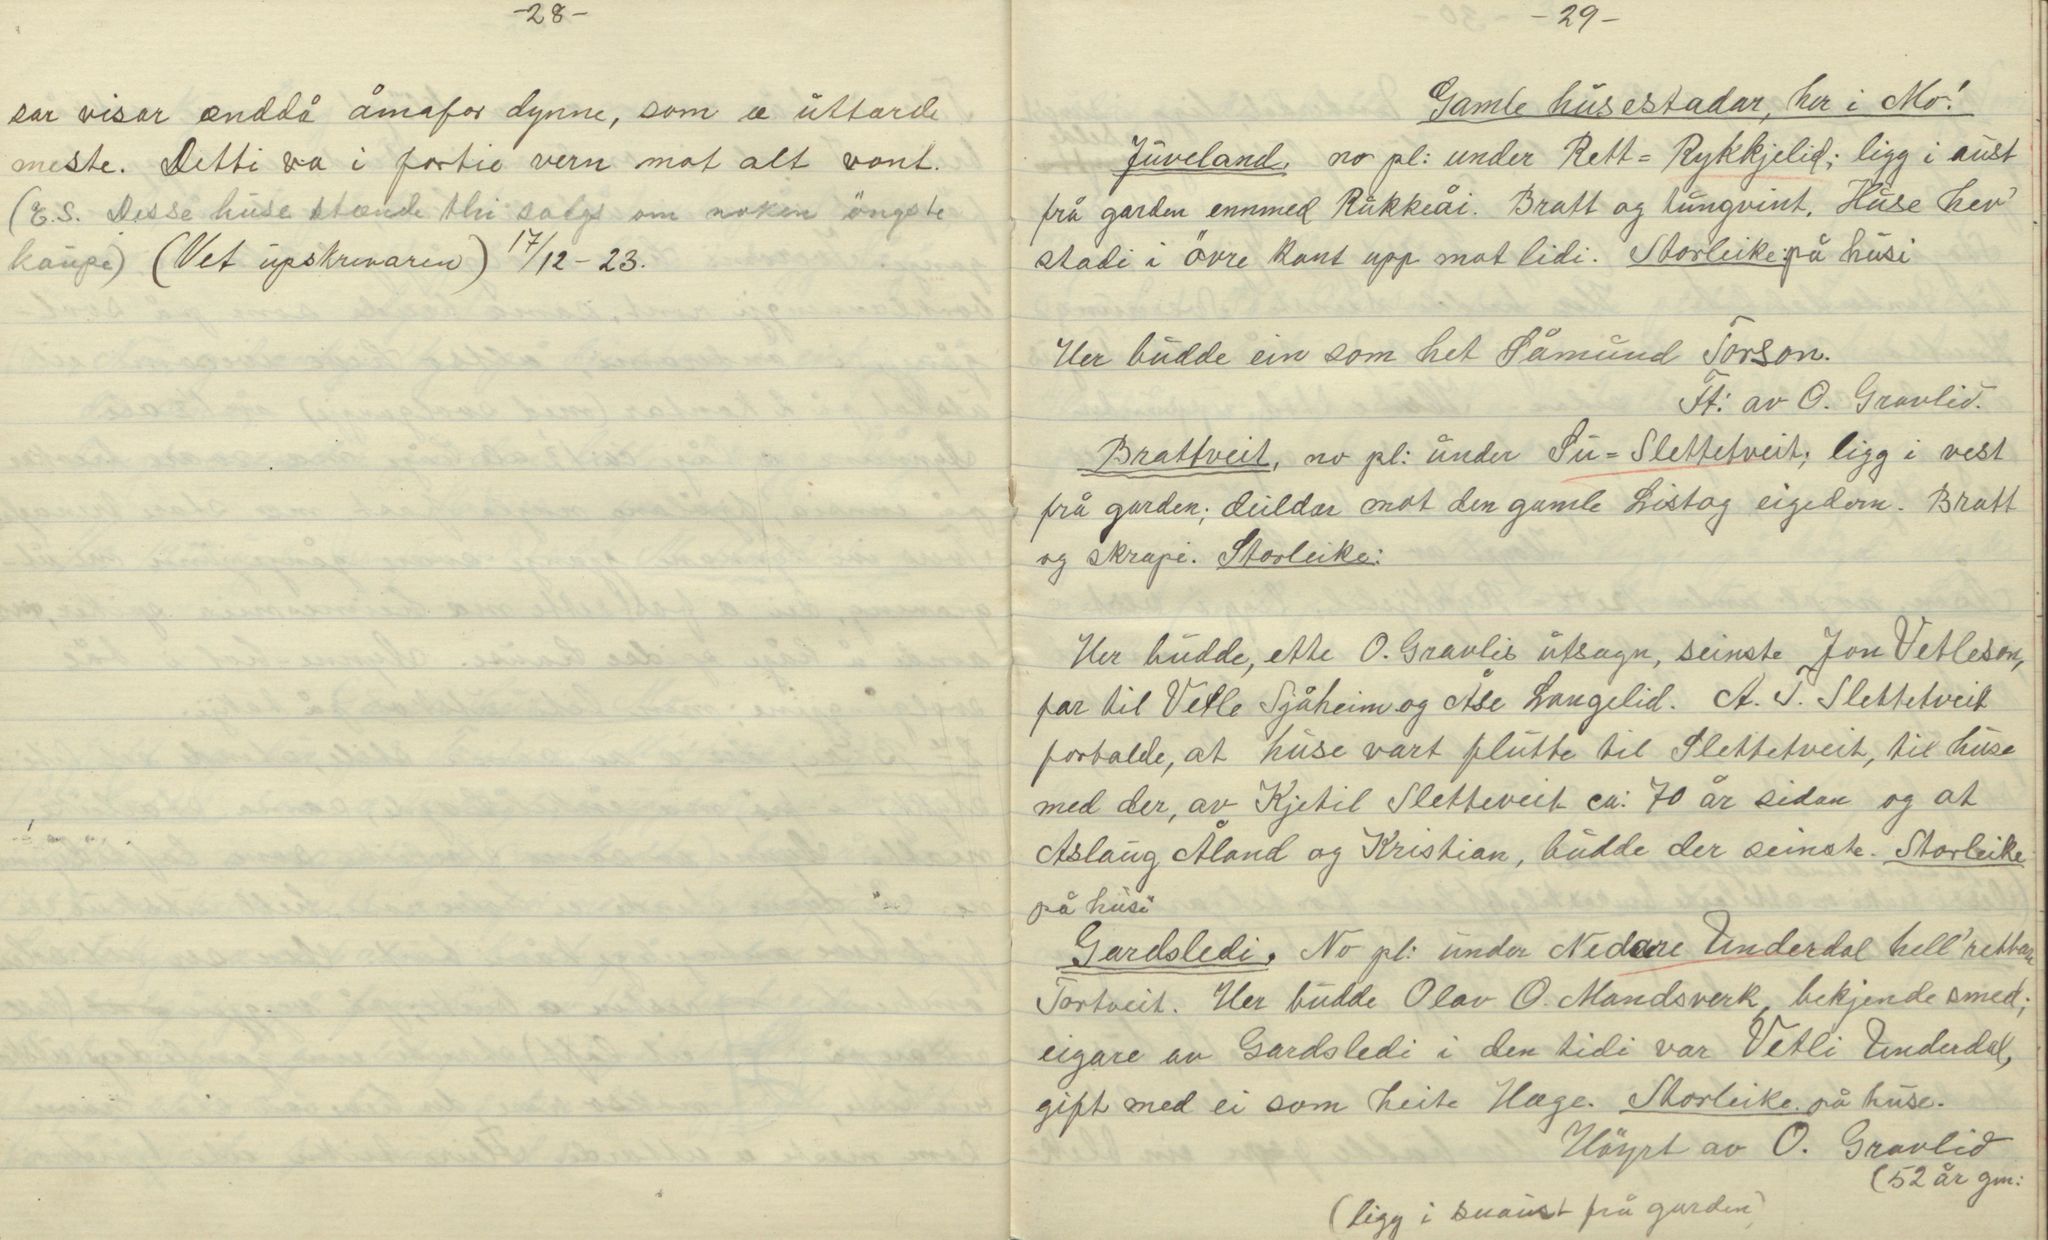 -28-
sar visar ænddå åmafor dynne, som æ uttarde
meste. Detti va i fortie vern mot alt vont.
(E.S. Desse huse stænde thi salgs om noken öngste
kaupe) (Vet upskrivaren) 17/12-23.
-29-
Gamle husestadar, her i Mo!
Juveland, no pl: under Rett=Rykkjelid; ligg i aust
frå garden ennmed Rukkeåi. Bratt og tungvint. Huse hev'
stadi i övre kant upp mot lidi. Storleike: på husi
Her budde ein som het Såmund Torson.
Ft: av O. Gravlid.
Brattveit, no pl: under Su=Slettetveit; ligg i vest
frå garden; deildar mot den gamle Listog eigedom. Bratt
og skrapi. Storleike:
Her budde, ette O. Gravlis utsagn, seinste Jon Vetleson,
far til Vetle Sjåheim og Åse Langelid. A. T. Slettetveit
fortalde, at huse vart flutte til Slettetveit, til huse
med der, av Kjetil Slettveit ca: 70 år sidan og at
Aslaug Åland og Kristian, budde der seinste. Storleike
på husi
Gardsledi. No pl: under Nedare Underdal hell' rettare
Tortveit. Her budde Olav O. Mandsverk, bekjende smed;
eigare av Gardsledi i den tidi var Vetli Underdal,
gift med ei som heite Hæge. Storleike på huse.
Höyrt av O. Gravlid
(52 år gm:
(ligg i suaust frå garden)